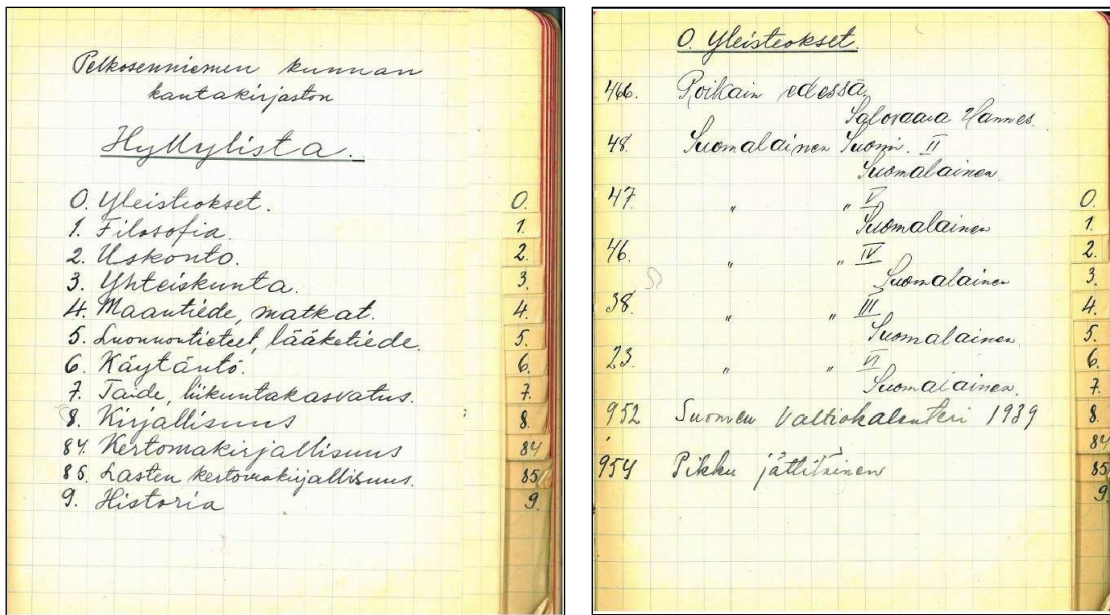 Pelkosenniemen kunnan
kantakirjaston
Hyllylista.
0. Yleisteokset.
1. Filosofia.
2. Uskonto.
3. Yhteiskunta.
4. Maantiede, matkat.
5. Luonnontieteet, lääketiede.
6. Käytäntö.
7. Taide, liikuntakasvatus.
8. Kirjallisuus
84. Kertomakirjallisuus
85. Lasten kertomakirjallisuus.
9. Historia
0.
1.
2.
3.
4.
5.
6.
7.
8.
84
85
9.
0. Yleisteokset.
466. Roikain edessä,
Salovaara Hannes.
48. Suomalainen Suomi. II
Suomalainen.
47. " " V
Suomalainen
46. " " IV
Suomalainen
38. " " III
Suomalainen.
23. " " VI
Suomalainen.
952 Suomen Valtiokalenteri 1939
954 Pikku jättiläinen
0.
1.
2.
3.
4.
5.
6.
7.
8.
84
85
9.